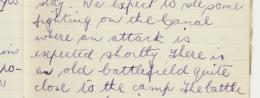 stay. We expect to see some
fighting on the Canal
where an attack is
expected shortly. There is
an old battlefield quite
close to the camp. The battle